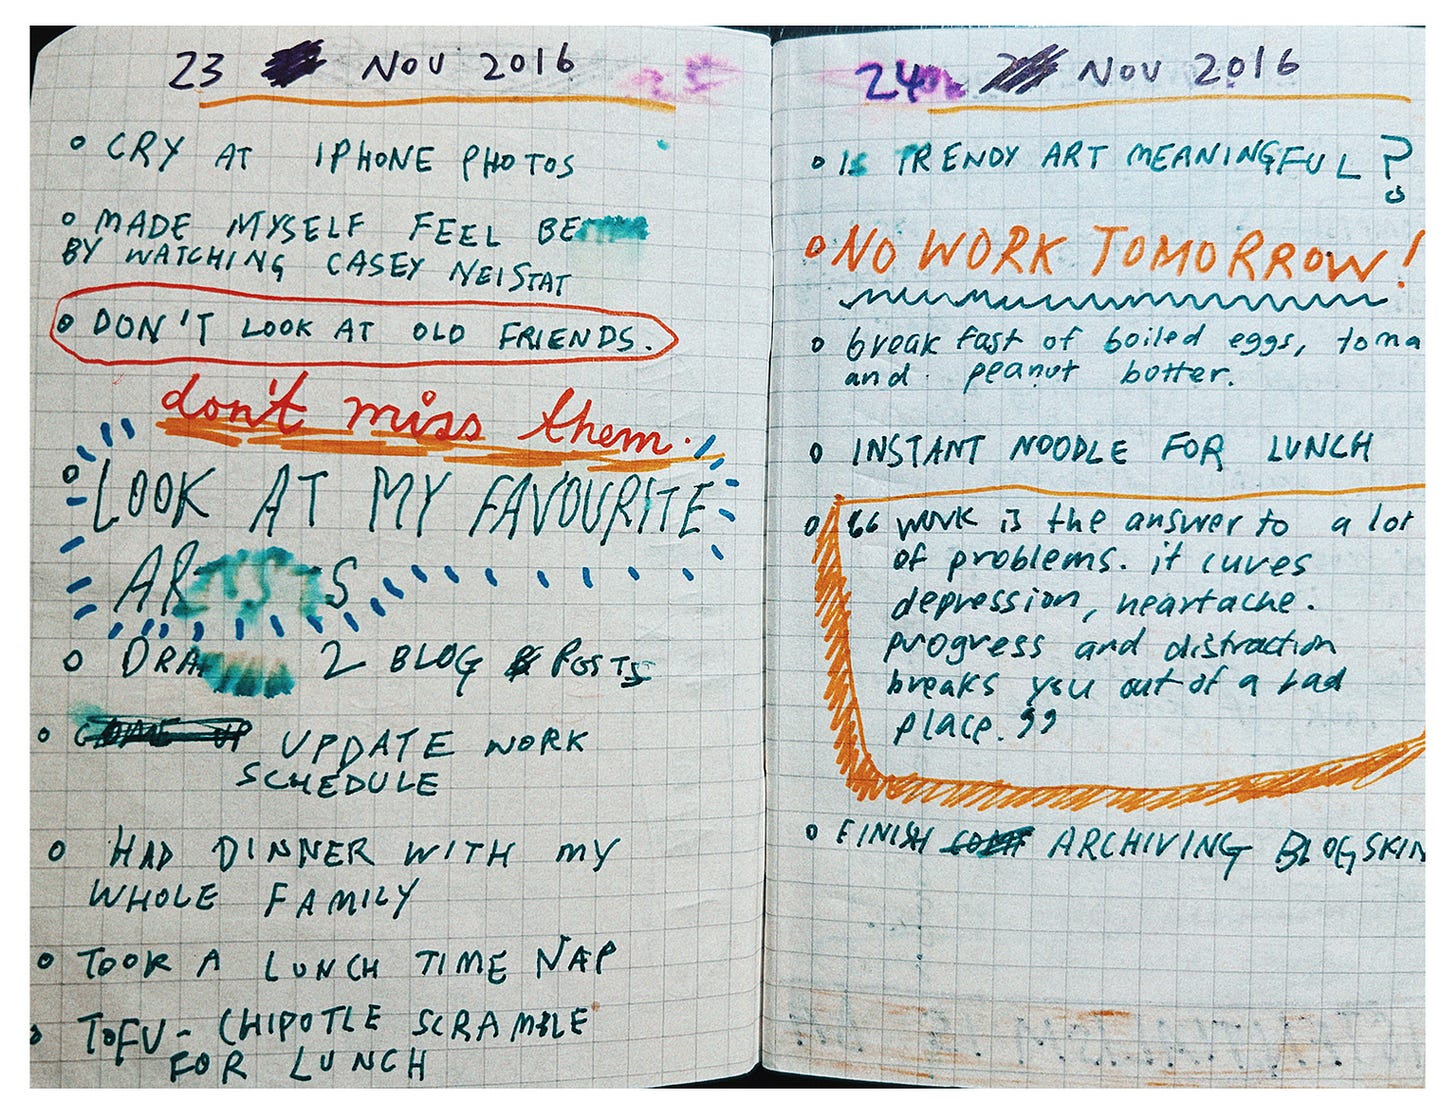 23 NOV 2016
25
CRY AT IPHONE PHOTOS
MADE MYSELF FEEL BE
BY WATCHING CASEY NEISTAT
DON'T LOOK AT OLD FRIENDS.
don't miss them.
LOOK AT MY FAVOURITE
ARTISTS
DRA 2 BLOG POSTS
UPDATE WORK
SCHEDULE
HAD DINNER WITH MY
WHOLE FAMILY
TOOK A LUNCH TIME NAP
TOFU - CHIPOTLE SCRAMBLE
FOR LUNCH
24 NOV 2016
IS TRENDY ART MEANINGFUL?
NO WORK TOMORROW!
breakfast of boiled eggs, toma
and peanut botter.
INSTANT NOODLE FOR LUNCH
“ work is the answer to a lot
of problems. it cures
depression, heartache.
progress and distraction
breaks you out of a bad
place.”
FINISH ARCHIVING BLOGSKIN